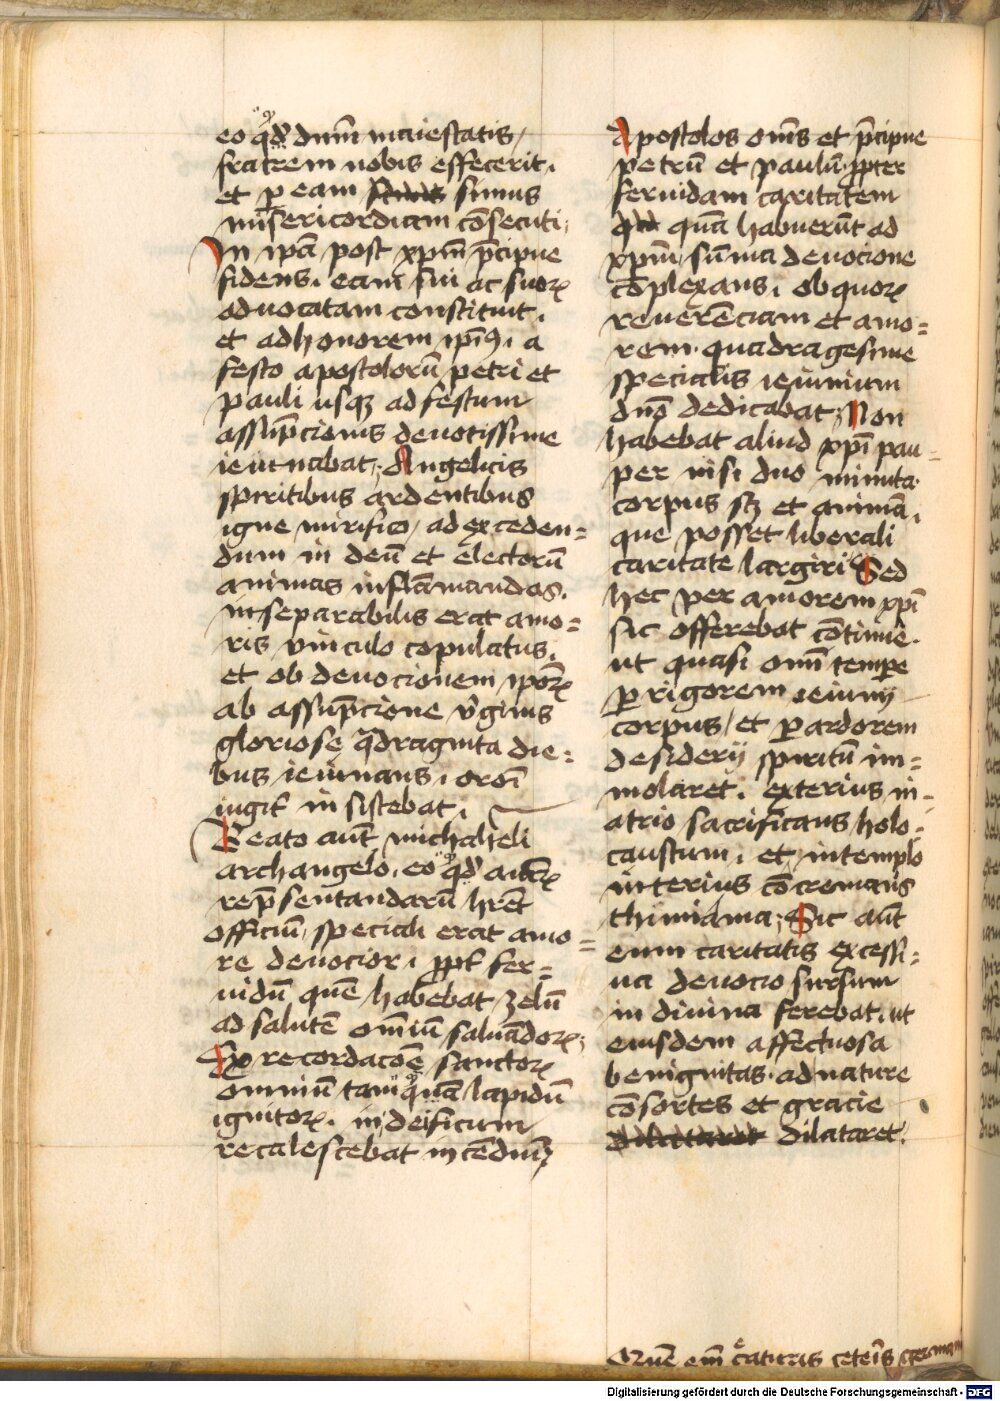 eo qd̉ dnm̄ maiestatis/
fratrem nobis effecerit.
et ꝑ eam simus
misericordiam cōsecuti.
In ipā post xp̄m p̄cipue
fidens. eam sui ac suoꝝ
advocatam constituit.
et ad honorem ip̄iꝰ. a
festo apostolorū petri et
pauli usqꝫ ad festum
assūpcionis devotissime
ieiunabat; Angelicis
spiritibus ardentibus
igne mirifico/ ad exceden=
dum in deū et electorū
animas inflāmandas.
inseparabilis erat amo=
ris vinculo copulatus.
et ob devocionem ip̄oꝝ
ab assūpcione v̄ginis
gloriose q̄draginta die=
bus ieiunans. or̄oni
iugit̉ insistebat.
Beato aut̄ michaheli
archangelo. eo qd̉ aīaꝝ
rep̄sentandarū hr̄et
officiū/ speciali erat amo=
re devocior. ꝓpt̉ fer=
uidū quē habebat zelū
ad salutē omniū salvādoꝝ;
Ex recordacōe sanctoꝝ
omniū tamquā lapidū
ignitoꝝ. in deificum
recalescebat incēdiū;
Apostolos om̄s et p̄cipue
petrū et paulū ꝓpter
feruidam caritatem
quā habuerūt ad
xp̄m/ sūma devocione
cōplexans. ob quoꝝ
reverēciam et amo=
rem. quadragesime
specialis ieiunium
dn̄o dedicabat; Non
habebat aliud xp̄i pau=
per nisi duo minuta.
corpus scꝫ et animā.
que posset liberali
caritate largiri Sed
hec per amorem xp̄i
sic offerebat cōtinue.
ut quasi omni tempore
ꝑ rigorem ieiunij
corpus/ et ꝑ ardorem
desiderij spiritū im=
molaret. exterius in=
atrio sacrificans holo=
caustum. et in templo
interius cōcremans
thimiama; Sic aut̄
eum caritatis excessi=
ua devocio sursum
in divina ferebat. ut
eiusdem affectuosa
benignitas. ad nature
cōsortes et gracie
dilataret.